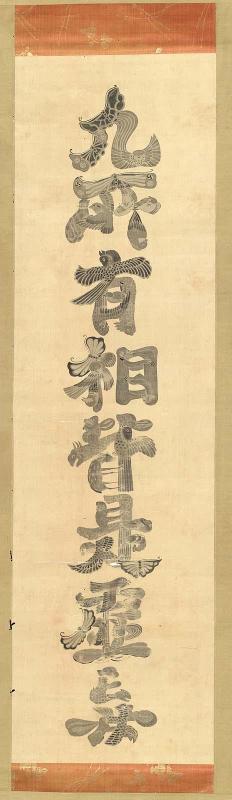 凡所有相皆是虚妄